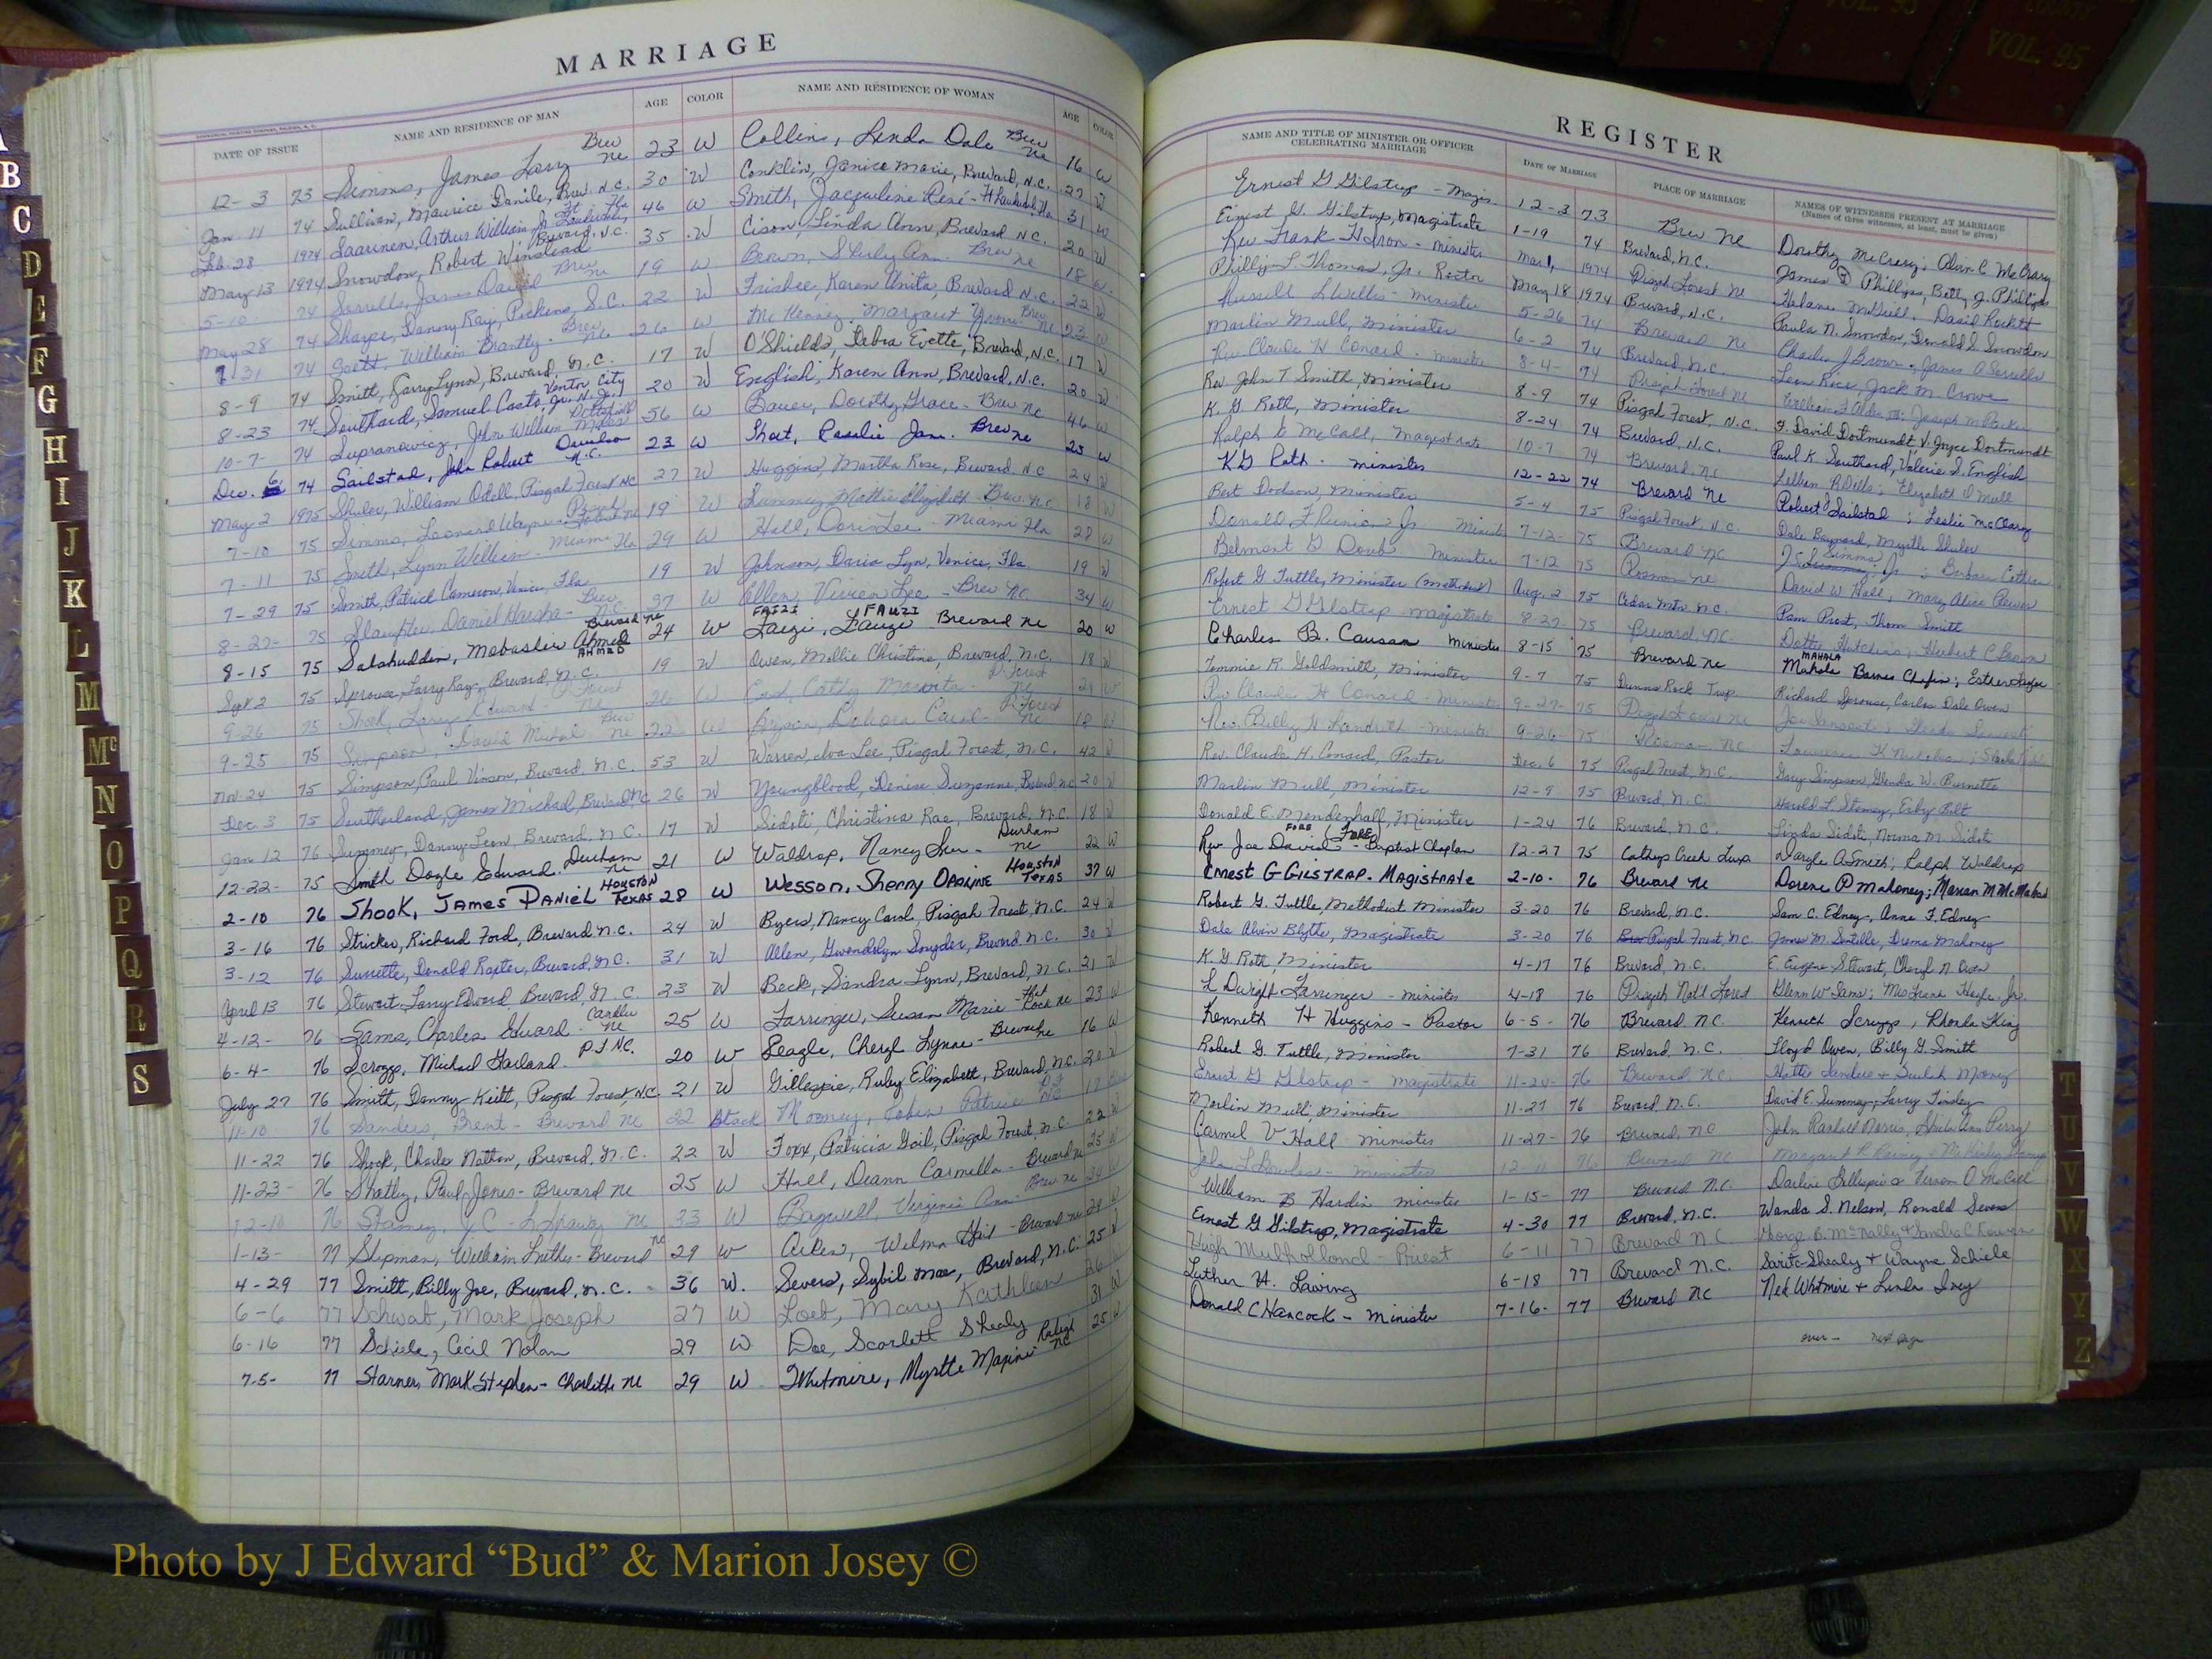 MARRIAGE
DATE OF ISSUE NAME AND RESIDENCE OF MAN AGE COLOR NAME AND RESIDENCE OF WOMAN AGE COLOR
12-3 73 Simms, James Larry Brev NC 23 W Collins, Linda Dale Brev NC 16 W
Jan. 11 74 Sullivan, Maurice Danile, Brev. N.C. 30 W Conklin, Janice Marie, Brevard, N.C. 27 W
Feb. 28 1974 Saarinen, Arthur William Jr Ft. Lauderdale, Fla 46 W Smith, Jacqueline René - Ft Lauderdale, Fla 31 W
May 13 1974 Snowdon, Robert Winstead Brevard, N.C. 35 W Cison, Linda Ann, Brevard N.C. 20 W
5-10 74 Sorrells, James David Brev NC 19 W Brown, Shirley Ann. Brev NC 18 W
May 28 74 Sharpe, Danny Ray, Pickens, S.C. 22 W Frisbee, Karen Anita, Brevard N.C. 22 W
7-31 74 Scott, William Brantly - Brev NC 26 W McKensey, Margaret Yvonne Brev NC 23 W
8-9 74 Smith, Garry Lynn, Brevard, N.C. 17 W O'Shields, Debra Evette, Brevard, N.C. 17 W
8-23 74 Southard, Samuel Casto, Jr. Ventor City N.J. 20 W English, Karen Ann, Brevard, N.C. 20 W
10-7- 74 Supranowicz, John William 56 W Bauer, Dorothy Grace - Brev NC 46 W
Dec. 6 74 Sailstad, John Robert Davidson N.C. 23 W Shoet, Rosalie Jane. Brev NC 23 W
May 2 1975 Shuler, William Odell, Pisgah Forest NC 27 W Huggins, Martha Rose, Brevard, N.C 24 W
7-10 75 Simms, Leonard Wayne - Pisgah Forest NC 19 W Summey, Mattie Elizabeth - Brev. N.C. 18 W
7-11 75 Smith, Lynn William - Miami Fla 29 W Hall, Doris Lee - Miami Fla 28 W
7-29 75 Smith, Patrick Cameron, Venice, Fla. 19 W Johnson, Daria Lyn, Venice, Fla 19 W
8-27- 75 Slaughter, Daniel Harsha - Brev. N.C. 37 W Allen, Vivien Lee - Brev NC. 34 W
8-15 75 Salahuddin, Mobasher Ahmed AHMED Brevard NC 24 W Faizi, Fauzi FAIZI FAUZI Brevard NC 20 W
Sept 2 75 Sprouse, Larry Ray, Brevard, N.C. 19 W Owen, Mollie Christine, Brevard, N.C. 18 W
9-26 75 Shook, Larry Edward - P. Forest NC 26 W Cash, Cathy P. Forest NC 21 W
9-25 75 Simpson, David Michal Brev NC 22 W Bryson, Debora Carol - P. Forest NC 18 W
Nov. 24 75 Simpson, Paul Vinson, Brevard, N.C. 53 W Warren, Eva Lee, Pisgah Forest, N.C. 42 W
Dec. 3 75 Southerland, James Michael, Brevard, NC 26 W Youngblood, Denise Suzanne, Brevard, N.C. 20 W
Jan 12 76 Summey, Danny Leon Brevard, N.C. 17 W Sidoti, Christina Rae, Brevard, N.C. 18 W
12-22- 75 Smith Dogle Edward. Durham NC 21 W Waldrop, Nancy Sue - Durham NC 22 W
2-10 76 SHOOK, JAMES DANIEL HOUSTON TEXAS 28 W Wesson, Sherry DARLINE Houston TEXAS 37 W
3-16 76 Stricker, Richard Ford, Brevard N.C. 24 W Byers, Nancy Carol, Pisgah Forest, N.C. 24 W
3-12 76 Surrette, Donald Raxter, Brevard, N.C. 31 W Allen, Gwendolyn Snyder, Brevard N.C. 30 W
April 13 76 Stewart, Larry Edward Brevard, N.C. 23 W Beck, Sandra Lynn, Brevard, N.C. 21 W
4-12- 76 Sams, Charles Edward - Candler NC 25 W Farringer, Susan Marie - Flat Rock NC 23 W
6-4- 76 Scroggs, Michael Garland. P.F. NC. 20 W Reagle, Cheryl Lynne - Brevard NC 16 W
July 27 76 Smith, Danny Keith, Pisgah Forest N.C. 21 W Gillespie, Ruby Elizabeth, Brevard, N.C. 20 W
11-10 76 Sanders, Brent - Brevard NC 22 Black Mooney, Robin Patrice 17
11-22 76 Shook, Charles Nathan, Brevard, N.C. 22 W Foxx, Patricia Gail, Pisgah Forest, N.C. 22 W
11-23- 76 Shatley, Paul Jones - Brevard NC 25 W Hall, Deann Carmella - Brevard NC 25 W
12-10 76 Stamey, J C - NC 33 W Bagwell, Virginia Ann - Brev NC 24 W
1-13- 77 Shipman, William Luther - Brevard NC 29 W Aiken, Wilma Gail - Brevard NC 29 W
4-29 77 Smith, Billy Joe, Brevard, N.C. 36 W. Severs, Sybil Mae, Brevard, N.C. 25 W
6-6 77 Schwab, Mark Joseph 27 W Loeb, Mary Kathleen 26
6-16 77 Schiele, Cecil Nolan 29 W Doe, Scarlett Shealy 31 W
7-5- 77 Starnes, Mark Stephen - Charlotte NC 29 W Whitmire, Myrtle Maxine Raleigh NC 25 W
REGISTER
NAME AND TITLE OF MINISTER OR OFFICER CELEBRATING MARRIAGE DATE OF MARRIAGE PLACE OF MARRIAGE NAMES OF WITNESSES PRESENT AT MARRIAGE
(Names of three witnesses, at least, must be given)
Ernest G Gilstrap - Magis. 12-3 73 Brev NC Dorothy McCrary; Alvin C McCrary
Ernest G. Gilstrap, Magistrate 1-19 74 Brevard, N.C. James D Phillips, Betty J. Phillips
Rev Frank - Minister Mar 1, 1974 Pisgah Forest NC Helane McNeill, David Rockett
Phillip L. Thomas, Jr. Rector May 18 1974 Brevard, N.C. Paula N. Snowdon, Donald D. Snowdon
Russell L Wells - Minister 5-26 74 Brevard NC Charles J Brown, James A Sorrells
Marlin Mull, Minister 6-2 74 Brevard, N.C. Leon Rose, Jack M. Crowe
Rev. Claude H Conard - Minister 8-4- 74 Pisgah Forest NC William F. Alden III; Joseph M Parker
Rev. John T Smith, Minister 8-9 74 Pisgah Forest, N.C. F. David Dortmundt, V. Joyce Dortmundt
K. G Roth, Minister 8-24 74 Brevard, N.C. Paul K. Southard, Valerie S. English
Ralph E McCall, Magistrate 10-7 74 Brevard, NC Lillian R Wells; Elizabeth D Mull
KG Roth - Minister 12-22 74 Brevard NC Robert J Sailstad; Leslie McCrary
Bert Dodson, Minister 5-4 75 Pisgah Forest, N.C. Dale Baynard, Myrtle Shuler
Donald F Jr Minister 7-12- 75 Brevard NC Simms Jr; Barbara Cothran
Belmont G Doub Minister 7-12 75 Rosman NC David W Hall, Mary Alice Reeves
Robert G Tuttle, Minister (Methodist) Aug. 2 75 Cedar Mtn. N.C. Pam Prost, Thom Smith
Ernest G Gilstrap - Magistrate 8-27 75 Brevard, NC - Dottie Hutchins, Herbert C Brown
Charles B. Causam Minister 8-15 75 Brevard NC MAHALA Mahala Barnes Chapin; Esther
Tommie R. Goldsmith, Minister 9-7 75 Dunns Rock Twp. Richard Sprouse, Carlan Dale Owen
Rev Claude H Conard - Minister 9-27- 75 Pisgah Forest NC
Rev Billy H Landreth - Minister 9-26- 75 Rosman NC
Rev. Claude H. Conard, Pastor Dec. 6 75 Pisgah Forest, N.C. Gary Simpson, Glenda W. Burnette
Marlin Mull, Minister 12-9 75 Brevard, N.C. Harold L Stamey, Erby Bilt
Donald E. Mendenhall, Minister 1-24 76 Brevard, N.C. Linda Sidoti, Norma M. Sidoti
Rev Joe David FORE (FORE) - Baptist Chaplan 12-27 75 Catheys Creek Twp. Dargle A Smith; Ralph Waldrop
Ernest G GILSTRAP - Magistrate 2-10- 76 Brevard NC Dorene P Mahoney; Marian M McMahon
Robert G. Tuttle, Methodist Minister 3-20 76 Brevard, N.C. Sam C. Edney, Anne F. Edney
Dale Alvin Blythe, Magistrate 3-20 76 Pisgah Forest, N.C. James M. Sentelle, Diema Mahoney
K. G Roth, Minister 4-17 76 Brevard, N.C. E. Eugene Stewart, Cheryl N. Owen
L Dwight Farringer - Minister 4-18 76 Pisgah Nat'l Forest Glenn W Sams; Mrs Frank Jr.
Kenneth H Huggins - Pastor 6-5- 76 Brevard NC. Kenneth Scroggs, Rhonda King
Robert G. Tuttle, Minister 7-31 76 Brevard, N.C. Lloyd Owen, Billy G. Smith
Ernest G Gilstrap - Magistrate 11-20- 76 Brevard NC. Hattie Sanders + Beulah Mooney
Marlin Mull, Minister 11-27 76 Brevard N.C. David E. Summey, Larry Tinsley
Carmel V Hall Minister 11-27- 76 Brevard, NC John Rashall Norris, Sheila Ann Perry
John L - Minister 12-11 76 Brevard NC
William B Hardin Minister 1-15- 77 Brevard N.C. Darlene Gillespie & Vernon O McCall
Ernest G Gilstrap, Magistrate 4-30 77 Brevard, N.C. Wanda S. Nelson, Ronald Severs
Hugh Mulholland - Priest 6-11 77 Brevard N.C George B. McNally & Sandra C
Luther H. Lawing 6-18 77 Brevard N.C. Sarite Shealy + Wayne Schiele
Donald C Hancock - Minister 7-16- 77 Brevard NC Ned Whitmire + Linda Ivey
over - next page
A
B
C
D
E
F
G
H
I
J
K
L
M
Mc
N
O
P
Q
R
S
T
U
V
W
X
Y
Z
VOL. 95
Photo by J Edward “Bud” & Marion Josey ©